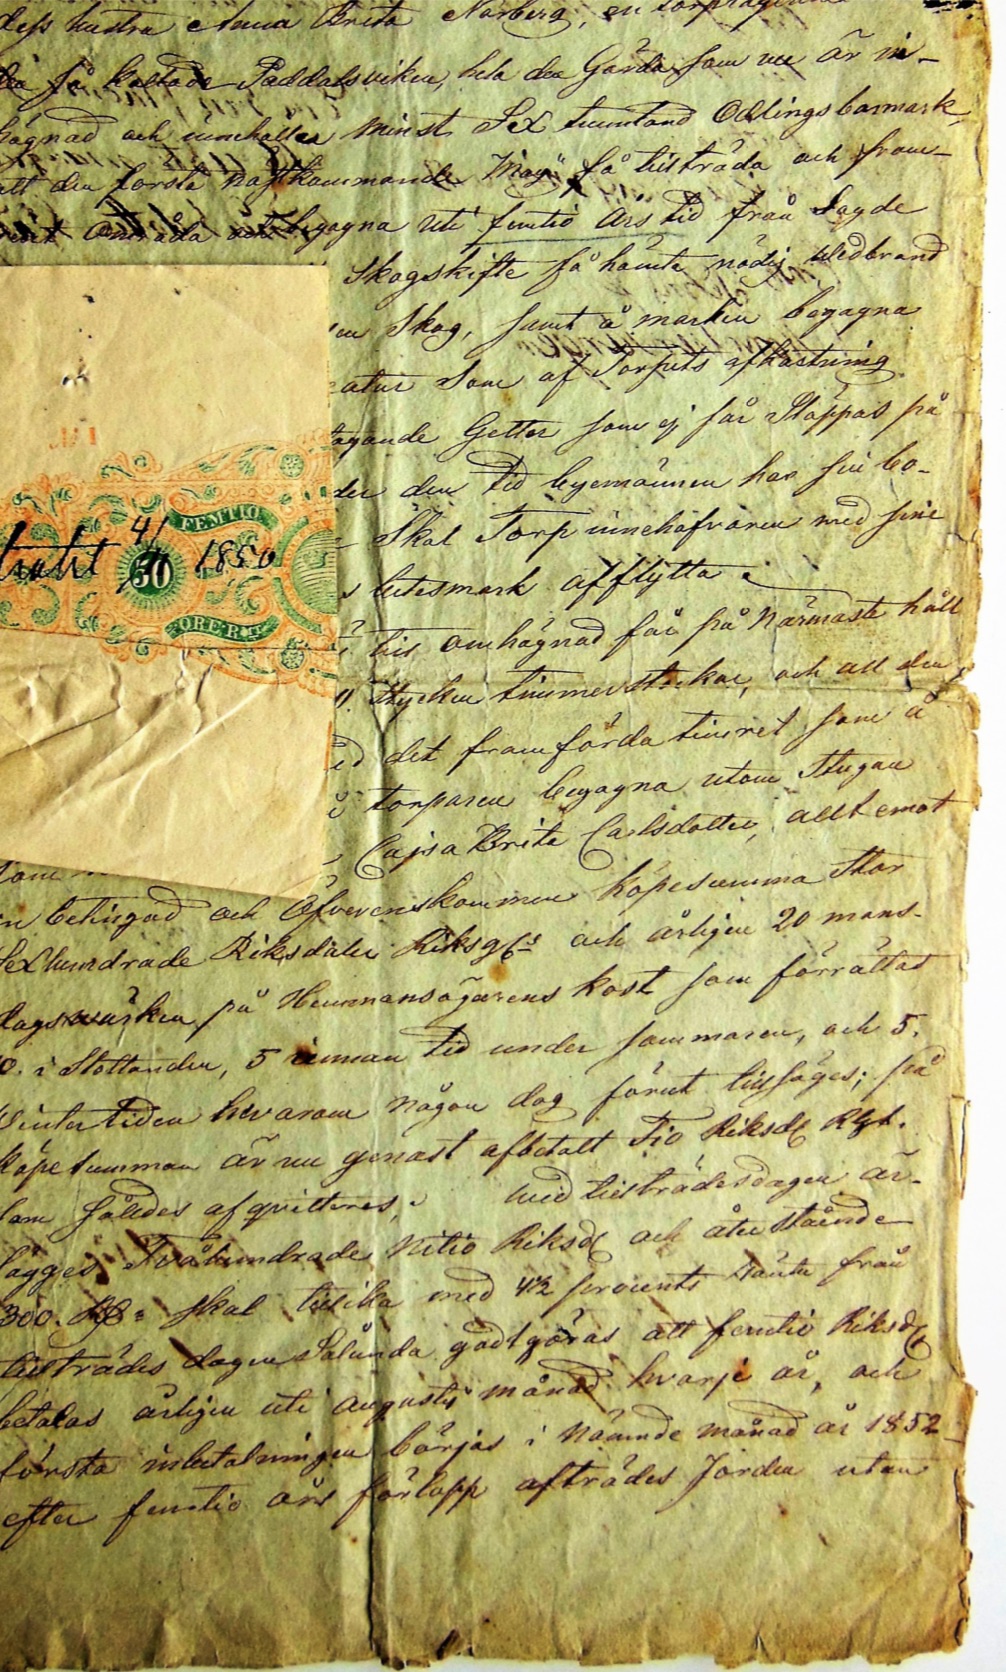 dess hustru Anna Brita Norberg, en
så kallade Paddalsviken, hela den Gärda som nu är in-
hägnad och innehåller minst Sex tunnland Odlingsbar mark,
att den första nästkommande Maji få tillträda och fram-
område begagna uti femtio års tid från Sagde
Skogskifte få hämta nödig Wedbrand
Skog, samt å marken begagna
som af Torpets afkastning
tagande Getter som ej får Släppas på
den tid byemännen har sin bo-
Skal Torp innehafvaren med sine
betesmark afflytta
omhägnad får på Närmaste håll
stycken timmerstockar, och all den
det framförda timret som å
torparen begagna utom Stugan
Cajsa Brita Carlsdotter, allt emot
en betingad och Öfverenskommen köpesumma Stor
Sexhundrade Riksdaler Riksgs och årligen 20 mans-
dagsverken på Hemmansägarens kost som förrättas
i Slottanden, 5 innan tid under sommaren, och 5.
Wintertiden hvarom någon dag förut tillsäges; på
köpesumman är nu genast afbetalt Tio Riksd Rgs.
som således afqvitteras, wid tillträdesdagen är-
lägges Tvåhundrade Nitio Riksd och återstående
300. skal tillika med 4½ procents ränta från
tillträdes dagen Sålunda godtgöras att femtio Riksd
betalas årligen uti Augusti månad hvarje år, och
första inbetalningen börjas i Nämnde månad år 1852
efter femtio års förlopp afträdes Jorden utan
FEMTIO
4/11 1850
50
ÖRE RMT